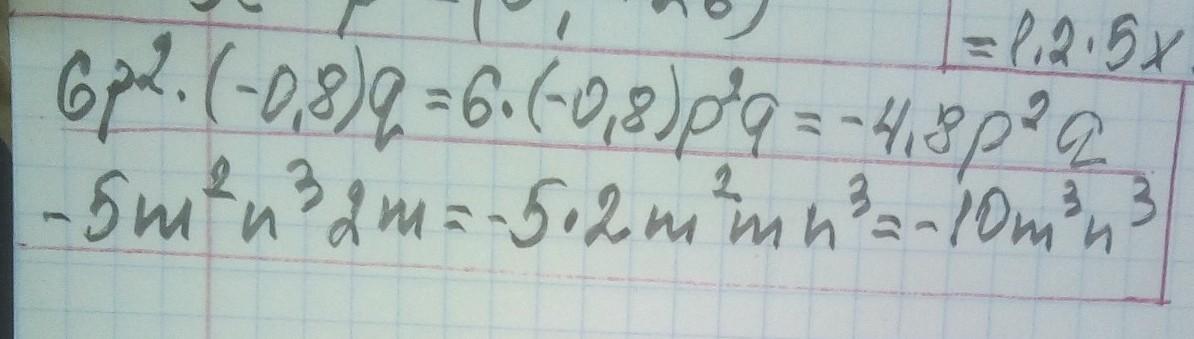 = 1,2·5x
6p²·(-0,8)q = 6·(-0,8)p²q = -4,8p²q
-5m²n³2m = -5·2m²mn³ = -10m³n³